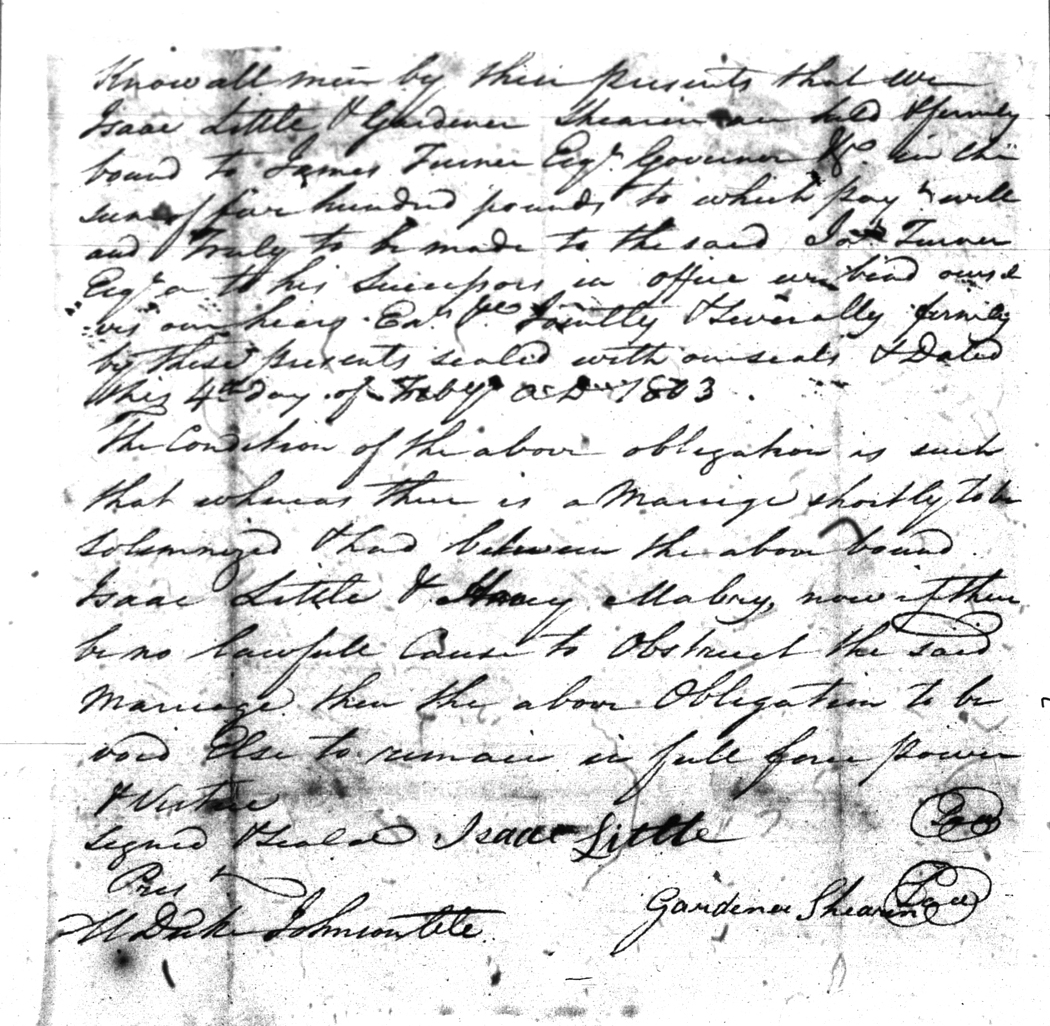 Know all men by these presents that we
Isaac Little & Gardener Shearin are held & firmly
bound to James Turner Esqr. Governor &c. in the
sum of five hundred pounds to which pay t well
and Truly to be made to the said Jas. Turner
Esqr or to his Successors in office we bind oursel
ves our heirs Exrs &c Jointly & Severally firmly
by these presents sealed with our seals & Dated
this 4th day of Feby A D 1803.
The Condition of the above obligation is such
that whereas there is a Marrige shortly to be
Solemnized & had between the above bound
Isaac Little & Mabry, now if there
be no lawfull Cause to Obstruct the said
Marriage then the above Obligation to be
void Else to remain in full force power
& Virtue
Signed & Seald Isaac Little Seal
Prest
M Duke Johnson Gardener Shearin Seal